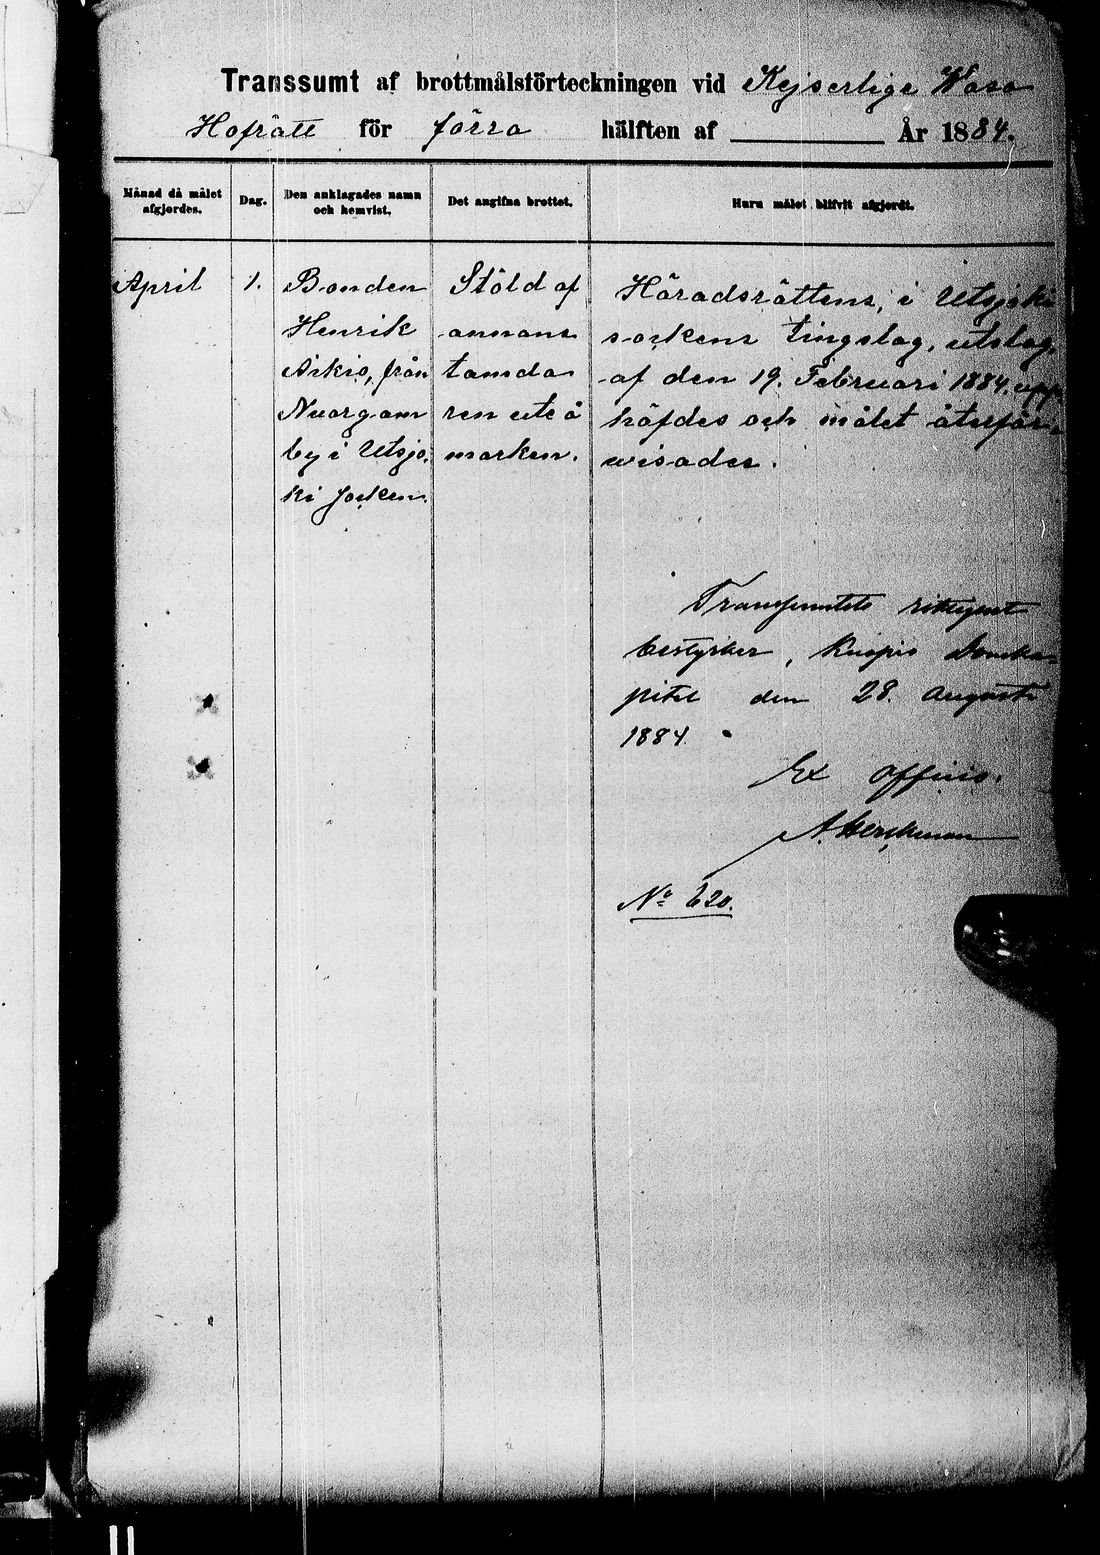 Transsumt af brottmålsförteckningen vid Kejserliga Wasa
Hofrätt för förra hälften af År 1884.
Månad då målet afgjordes.
Dag.
Den anklagades namn och hemvist.
Det angifna brottet.
Huru målet blifvit afgjordt.
April
1.
Bonden
Henrik
Aikio, från
Nuorgam
by i Utsjo,
ki socken.
Stöld af
annans
tamda
ren ute å
marken.
Häradsrättens, i Utsjoki
sockens tingslag, utslag,
af den 19. Februari 1884, upp,
häfdes och målet återför,
visades.
Transsumtets riktighet
bestyrker, Kuopio Domka-
pitel den 28. Augusti
1884.
Ex officio.
No 620.